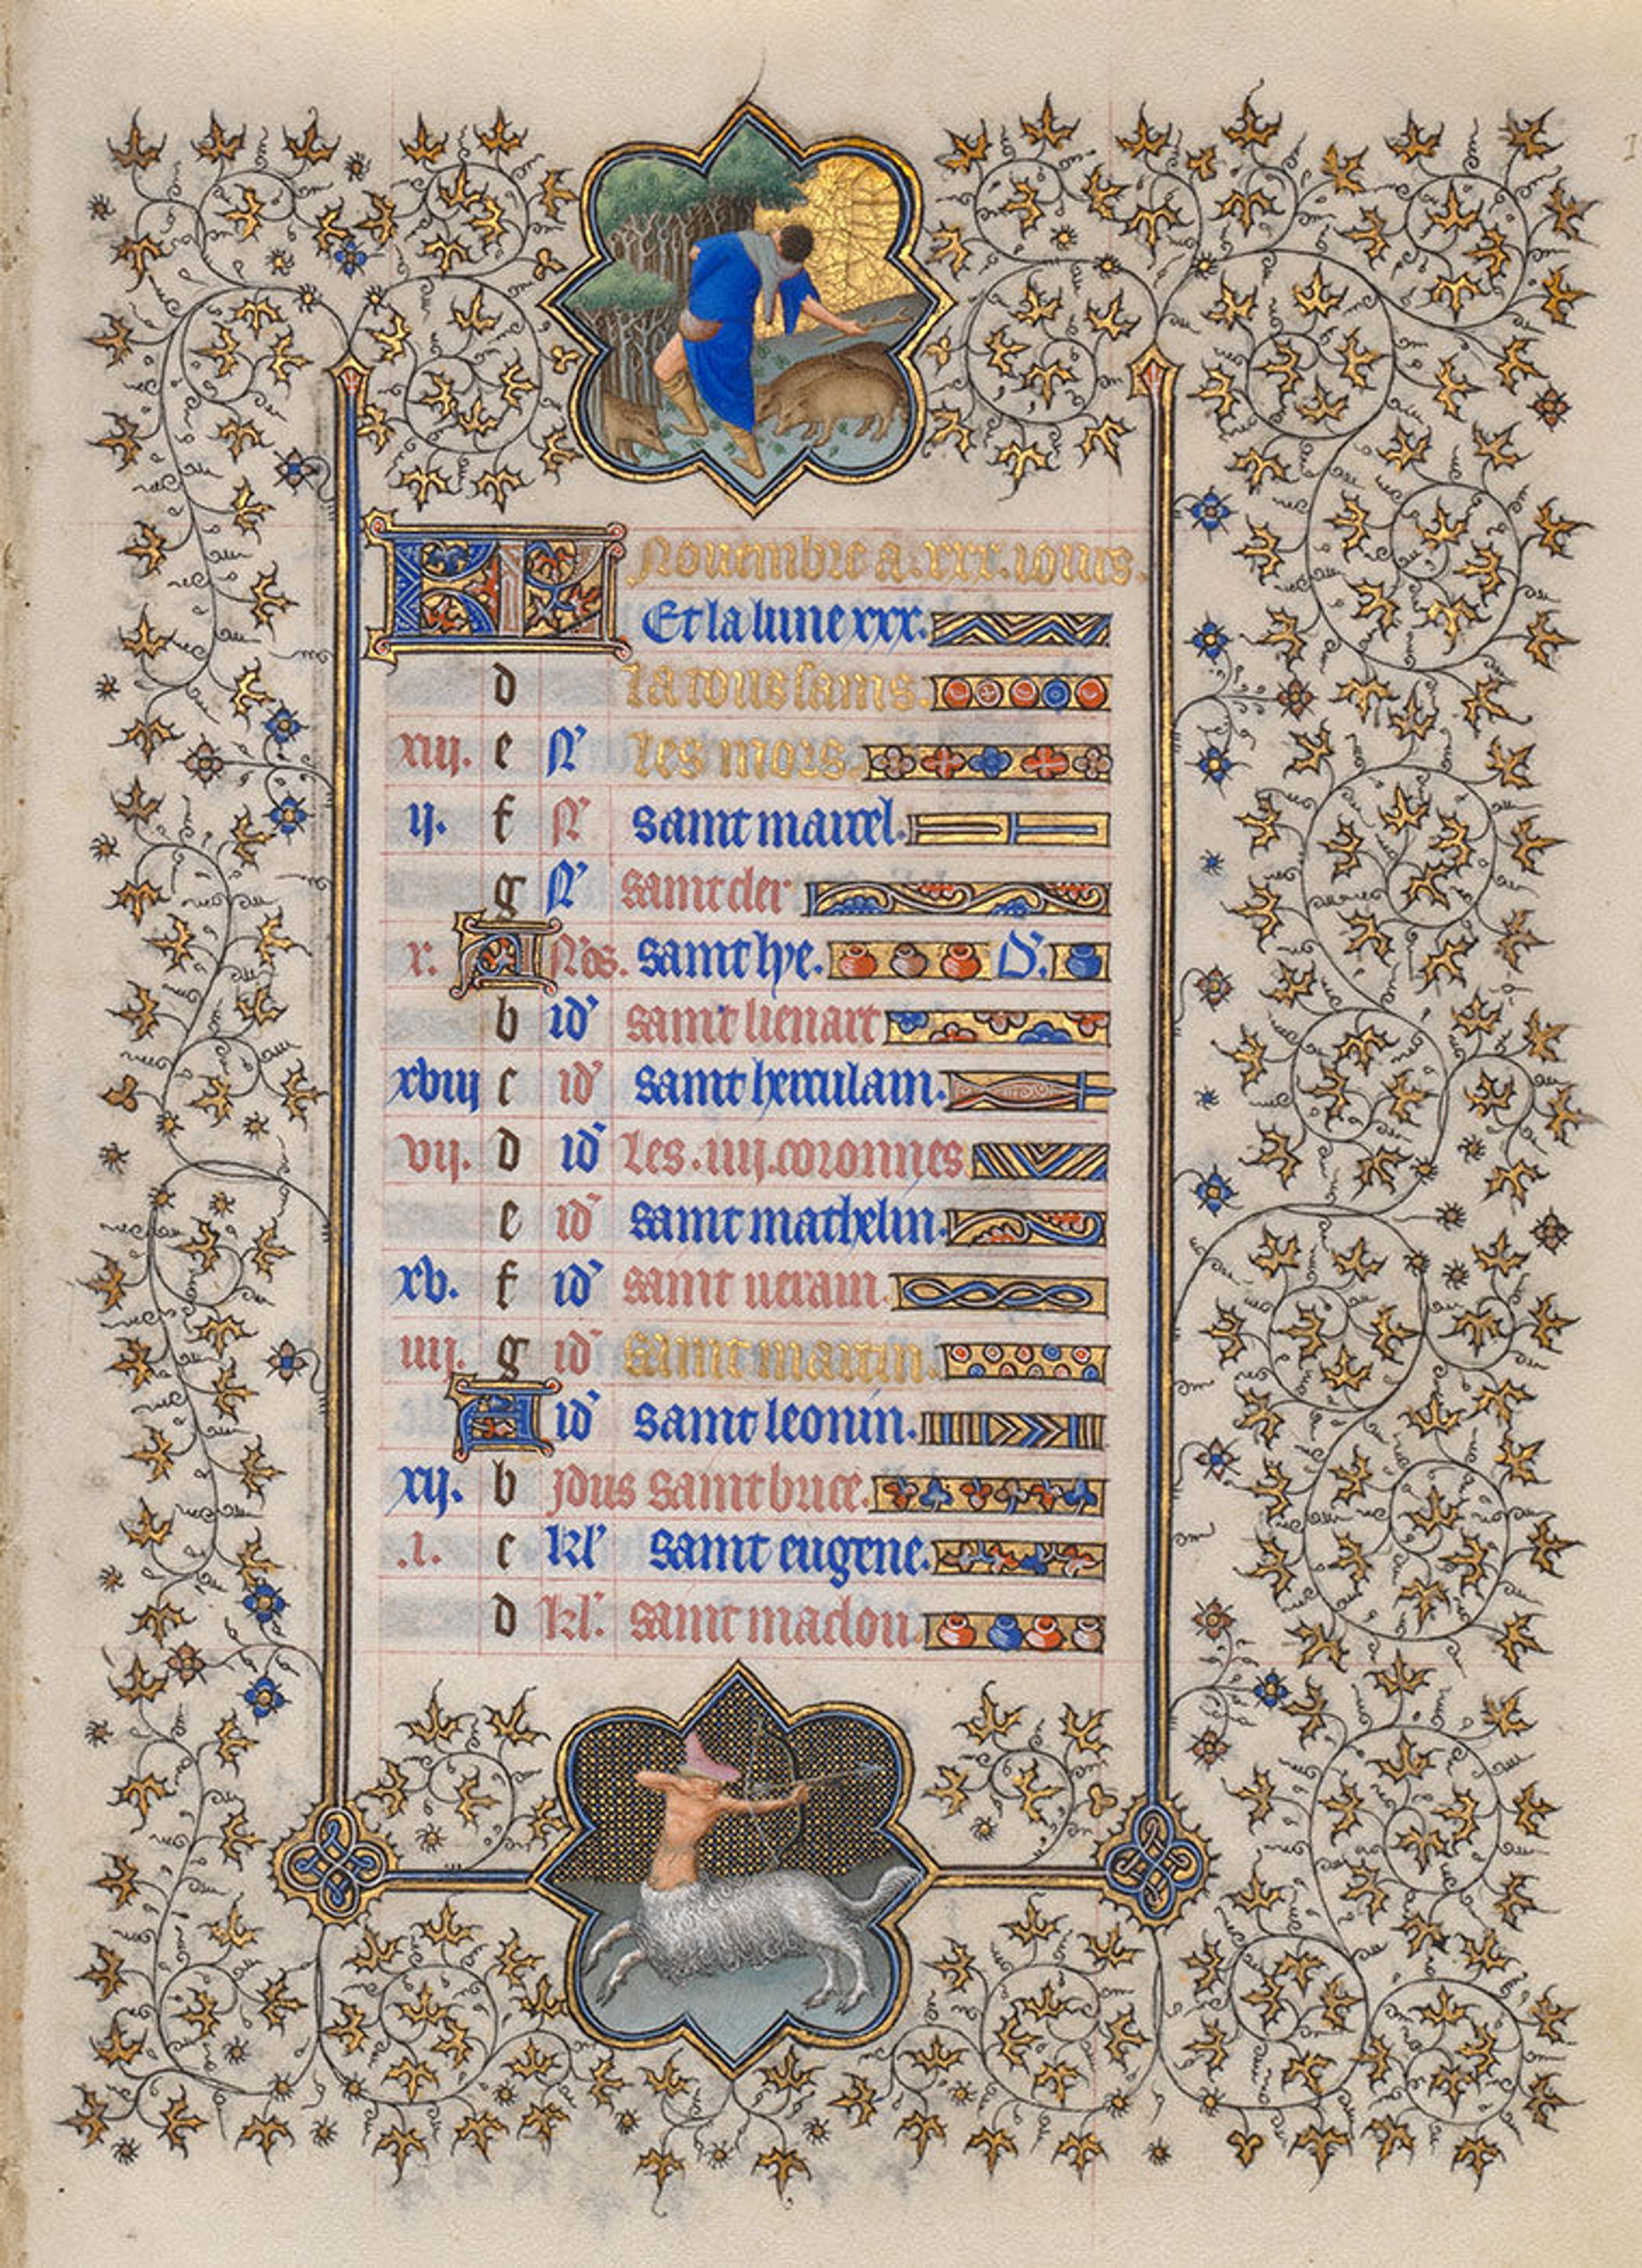 KL Novembre a .xxx. iours.
Et la lune xxx.
d La tous sains.
xiij. e N' Les mors.
ij. f N' saint marcel.
g N' saint cler
x. A Nos. saint lye. D'.
b id' saint lienart
xviij c id' saint herculain.
vij. d id' Les .iiij. coronnes
e id' saint mathelin.
xv. f id' saint verain.
iiij. g id' saint martin.
A id' saint leonin.
xij. b jdus saint brice.
.i. c kl' saint eugene.
d kl'. saint maclou.